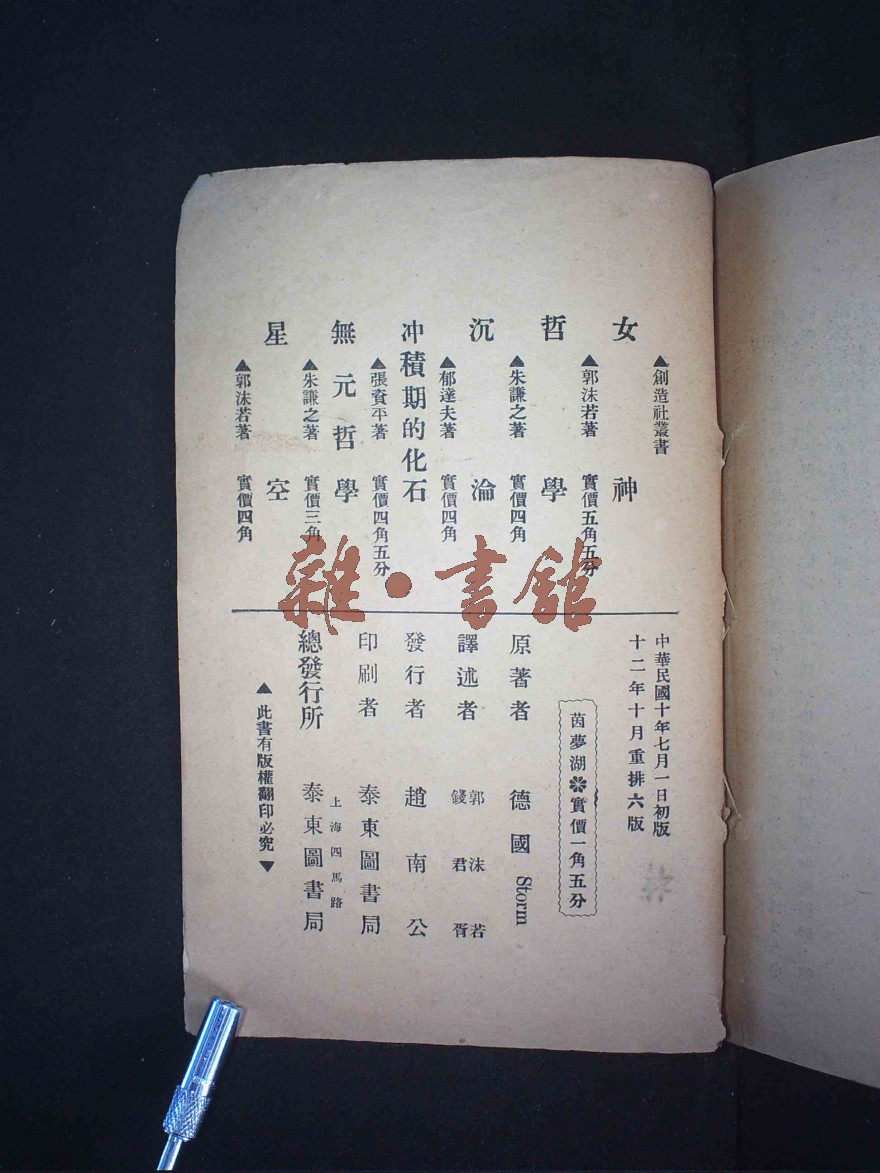 ▲創造社叢書
女神
▲郭沫若著 實價五角五分
哲學
▲朱謙之著 實價四角
沉淪
▲郁達夫著 實價四角
冲積期的化石
▲張資平著 實價四角五分
無元哲學
▲朱謙之著 實價三角
星空
▲郭沫若著 實價四角
雜·書館
中華民國十年七月一日初版
十二年十月重排六版
茵夢湖✽實價一角五分
原著者 德國 Storm
譯述者 郭沫若
錢君胥
發行者 趙南公
印刷者 泰東圖書局
上海四馬路
總發行所 泰東圖書局
▲此書有版權翻印必究▼